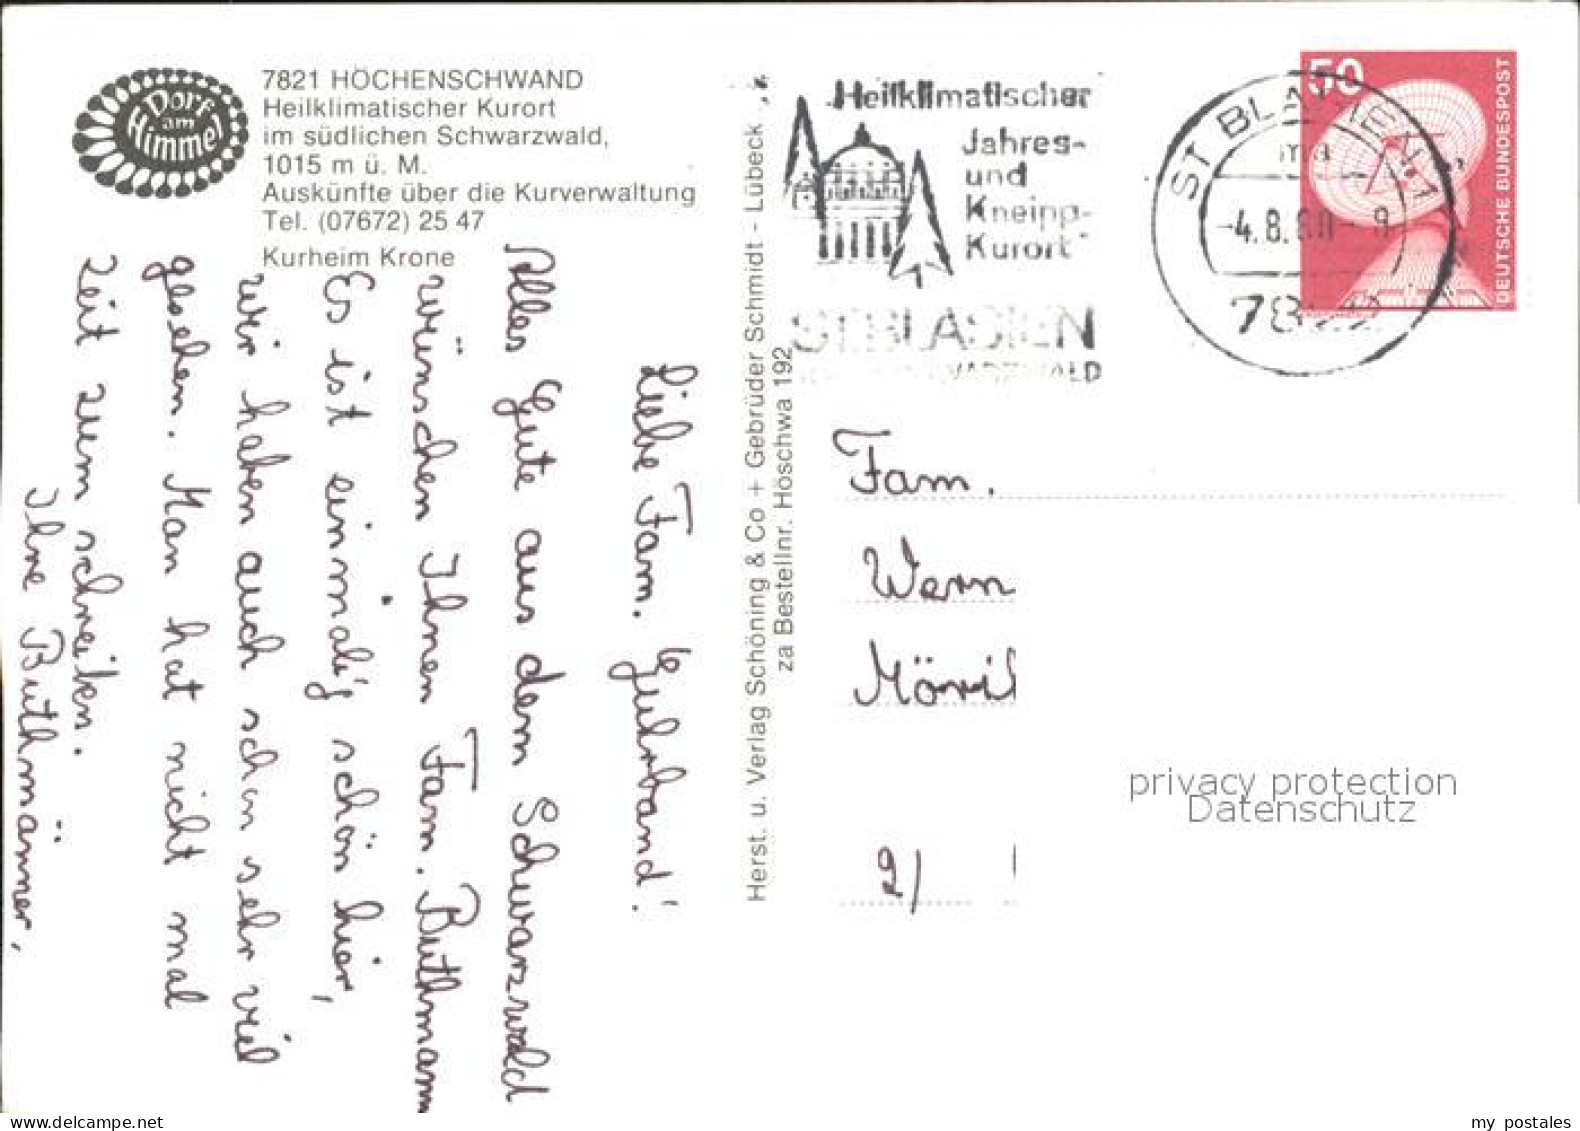 Dorf
am
Himmel
7821 HÖCHENSCHWAND
Heilklimatischer Kurort
im südlichen Schwarzwald,
1015 m ü. M.
Auskünfte über die Kurverwaltung
Tel. (07672) 25 47
Kurheim Krone
Liebe Fam. Guhrband!
Alles Gute aus dem Schwarzwald
wünschen Ihnen Fam. Buthmann
Es ist einmalig schön hier,
wir haben auch schon sehr viel
gesehen. Man hat nicht mal
Zeit zum schreiben.
Ihre Buthmänner,
Herst. u. Verlag Schöning & Co + Gebrüder Schmidt - Lübeck
za Bestellnr. Höschwa 192
Heilklimatischer
Jahres-
und
Kneipp-
Kurort
ST. BLASIEN
ST BLASIEN 1
ma
-4.8.80-8
50
DEUTSCHE BUNDESPOST
Fam.
Wern
Möri
2/
privacy protection
Datenschutz
delcampe.net
my postales